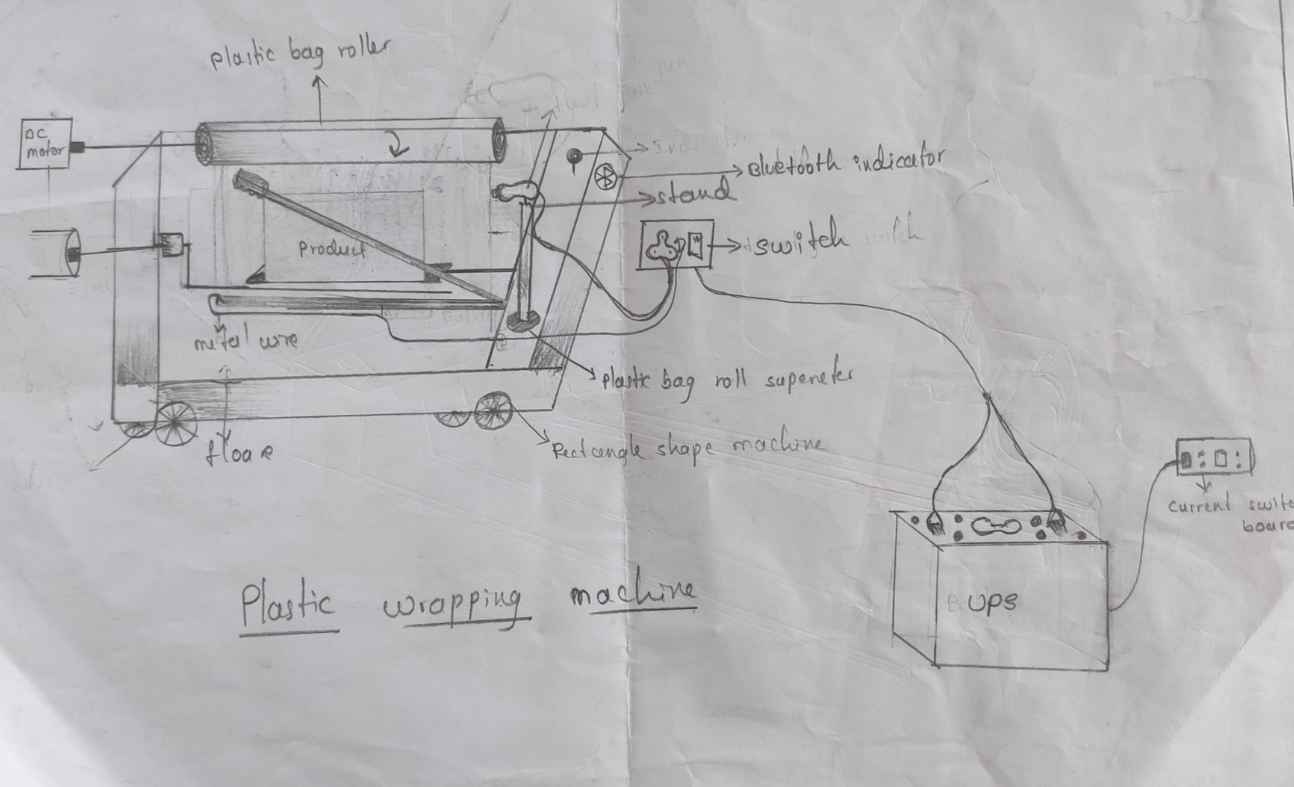 plastic bag roller
DC
motor
Bluetooth indicator
stand
switch
Product
metal wire
plastic bag roll supereter
Rectangle shape machine
floore
current switc
board
UPS
Plastic wrapping machine